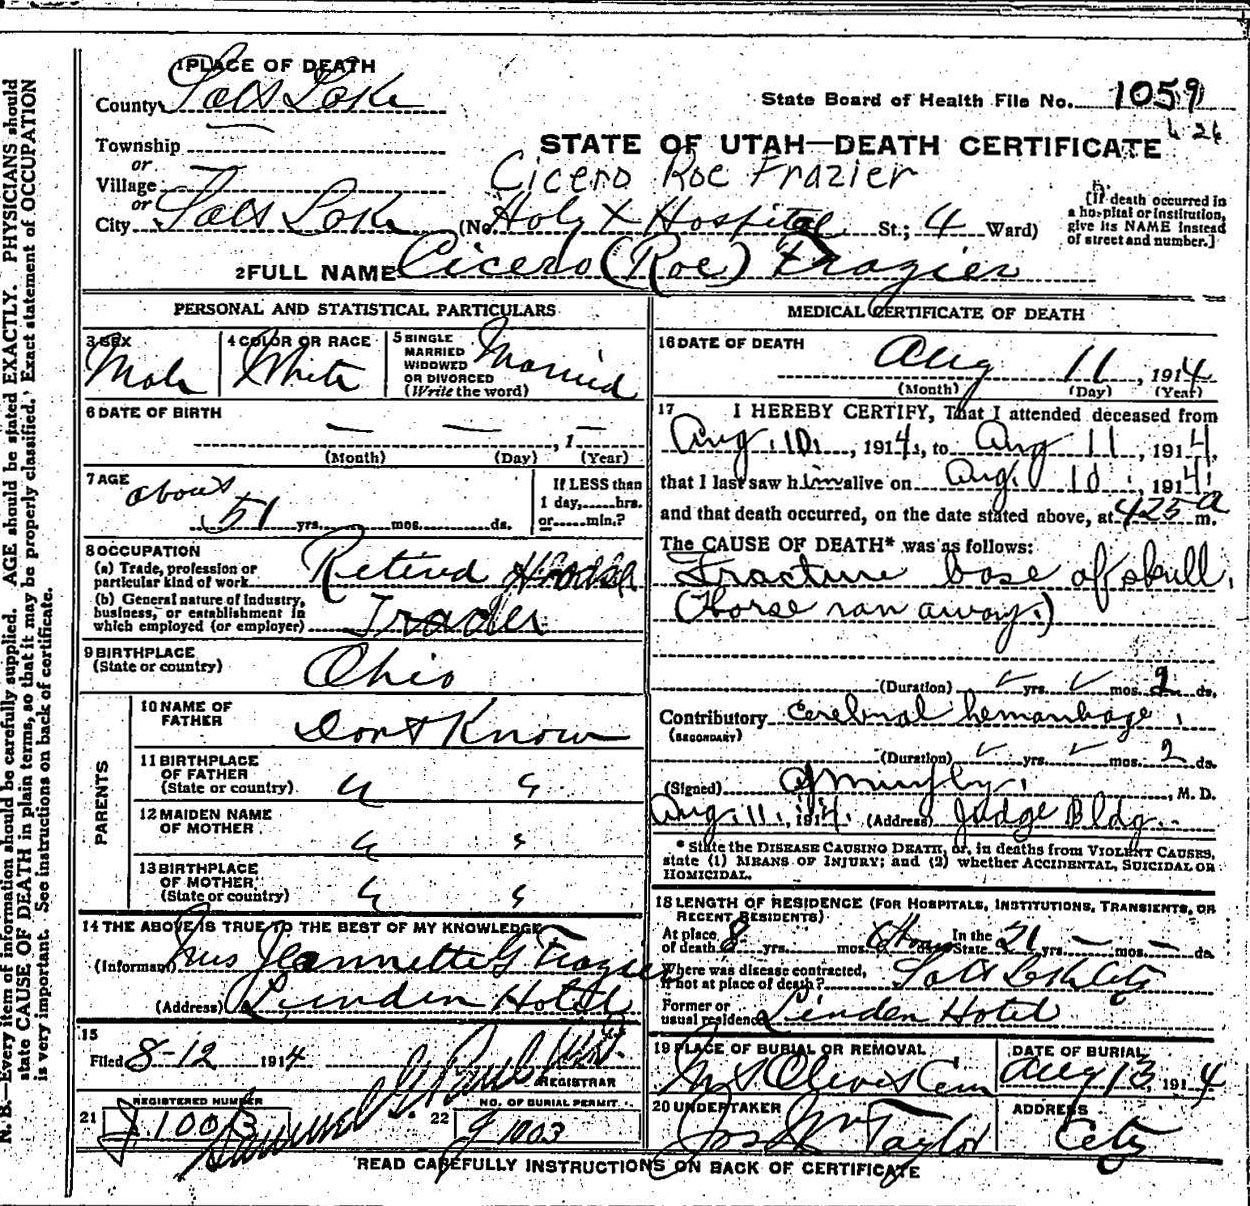 1 PLACE OF DEATH
County Salt Lake
State Board of Health File No. 1059
Township
STATE OF UTAH—DEATH CERTIFICATE
or
Village
Cicero Roe Frazier
or
City Salt Lake (No. Holy X Hospital St.; 4 Ward)
[If death occurred in a hospital or institution, give its NAME instead of street and number.]
2 FULL NAME Cicero (Roe) Frazier
PERSONAL AND STATISTICAL PARTICULARS
3 SEX Male
4 COLOR OR RACE White
5 SINGLE MARRIED WIDOWED OR DIVORCED (Write the word) Married
6 DATE OF BIRTH — — , 1—
(Month) (Day) (Year)
7 AGE about 51 yrs. mos. ds.
If LESS than 1 day, hrs. or min.?
8 OCCUPATION
(a) Trade, profession or particular kind of work Retired Horse
(b) General nature of industry, business, or establishment in which employed (or employer) Trader
9 BIRTHPLACE (State or country) Ohio
PARENTS
10 NAME OF FATHER Dont Know
11 BIRTHPLACE OF FATHER (State or country) " "
12 MAIDEN NAME OF MOTHER " "
13 BIRTHPLACE OF MOTHER (State or country) " "
14 THE ABOVE IS TRUE TO THE BEST OF MY KNOWLEDGE
(Informant) Mrs Jeannette G Frazier
(Address) Linden Hotel
15
Filed 8-12 1914
REGISTRAR
21 REGISTERED NUMBER J. 1003
22 NO. OF BURIAL PERMIT J 1003
MEDICAL CERTIFICATE OF DEATH
16 DATE OF DEATH Aug 11, 1914
(Month) (Day) (Year)
17 I HEREBY CERTIFY, That I attended deceased from
Aug. 10, 1914, to Aug 11, 1914,
that I last saw him alive on Aug. 10, 1914,
and that death occurred, on the date stated above, at 425 a m.
The CAUSE OF DEATH* was as follows:
Fracture base of skull.
(Horse ran away.)
(Duration) yrs. mos. 2 ds.
Contributory Cerebral hemorrhage.
(SECONDARY)
(Duration) yrs. mos. 2 ds.
(Signed) , M. D.
Aug. 11, 1914. (Address) Judge Bldg.
* State the DISEASE CAUSING DEATH, or, in deaths from VIOLENT CAUSES, state (1) MEANS OF INJURY; and (2) whether ACCIDENTAL, SUICIDAL OR HOMICIDAL.
18 LENGTH OF RESIDENCE (FOR HOSPITALS, INSTITUTIONS, TRANSIENTS, OR RECENT RESIDENTS)
At place of death 8 yrs. mos. In the State 21 yrs. — mos. — ds.
Where was disease contracted, if not at place of death? Salt Lake City
Former or usual residence Linden Hotel
19 PLACE OF BURIAL OR REMOVAL Mt Olivet Cem
DATE OF BURIAL Aug 13, 1914
20 UNDERTAKER Jos Wm Taylor
ADDRESS City
READ CAREFULLY INSTRUCTIONS ON BACK OF CERTIFICATE
N. B.—Every item of information should be carefully supplied. AGE should be stated EXACTLY. PHYSICIANS should
state CAUSE OF DEATH in plain terms, so that it may be properly classified. Exact statement of OCCUPATION
is very important. See instructions on back of certificate.